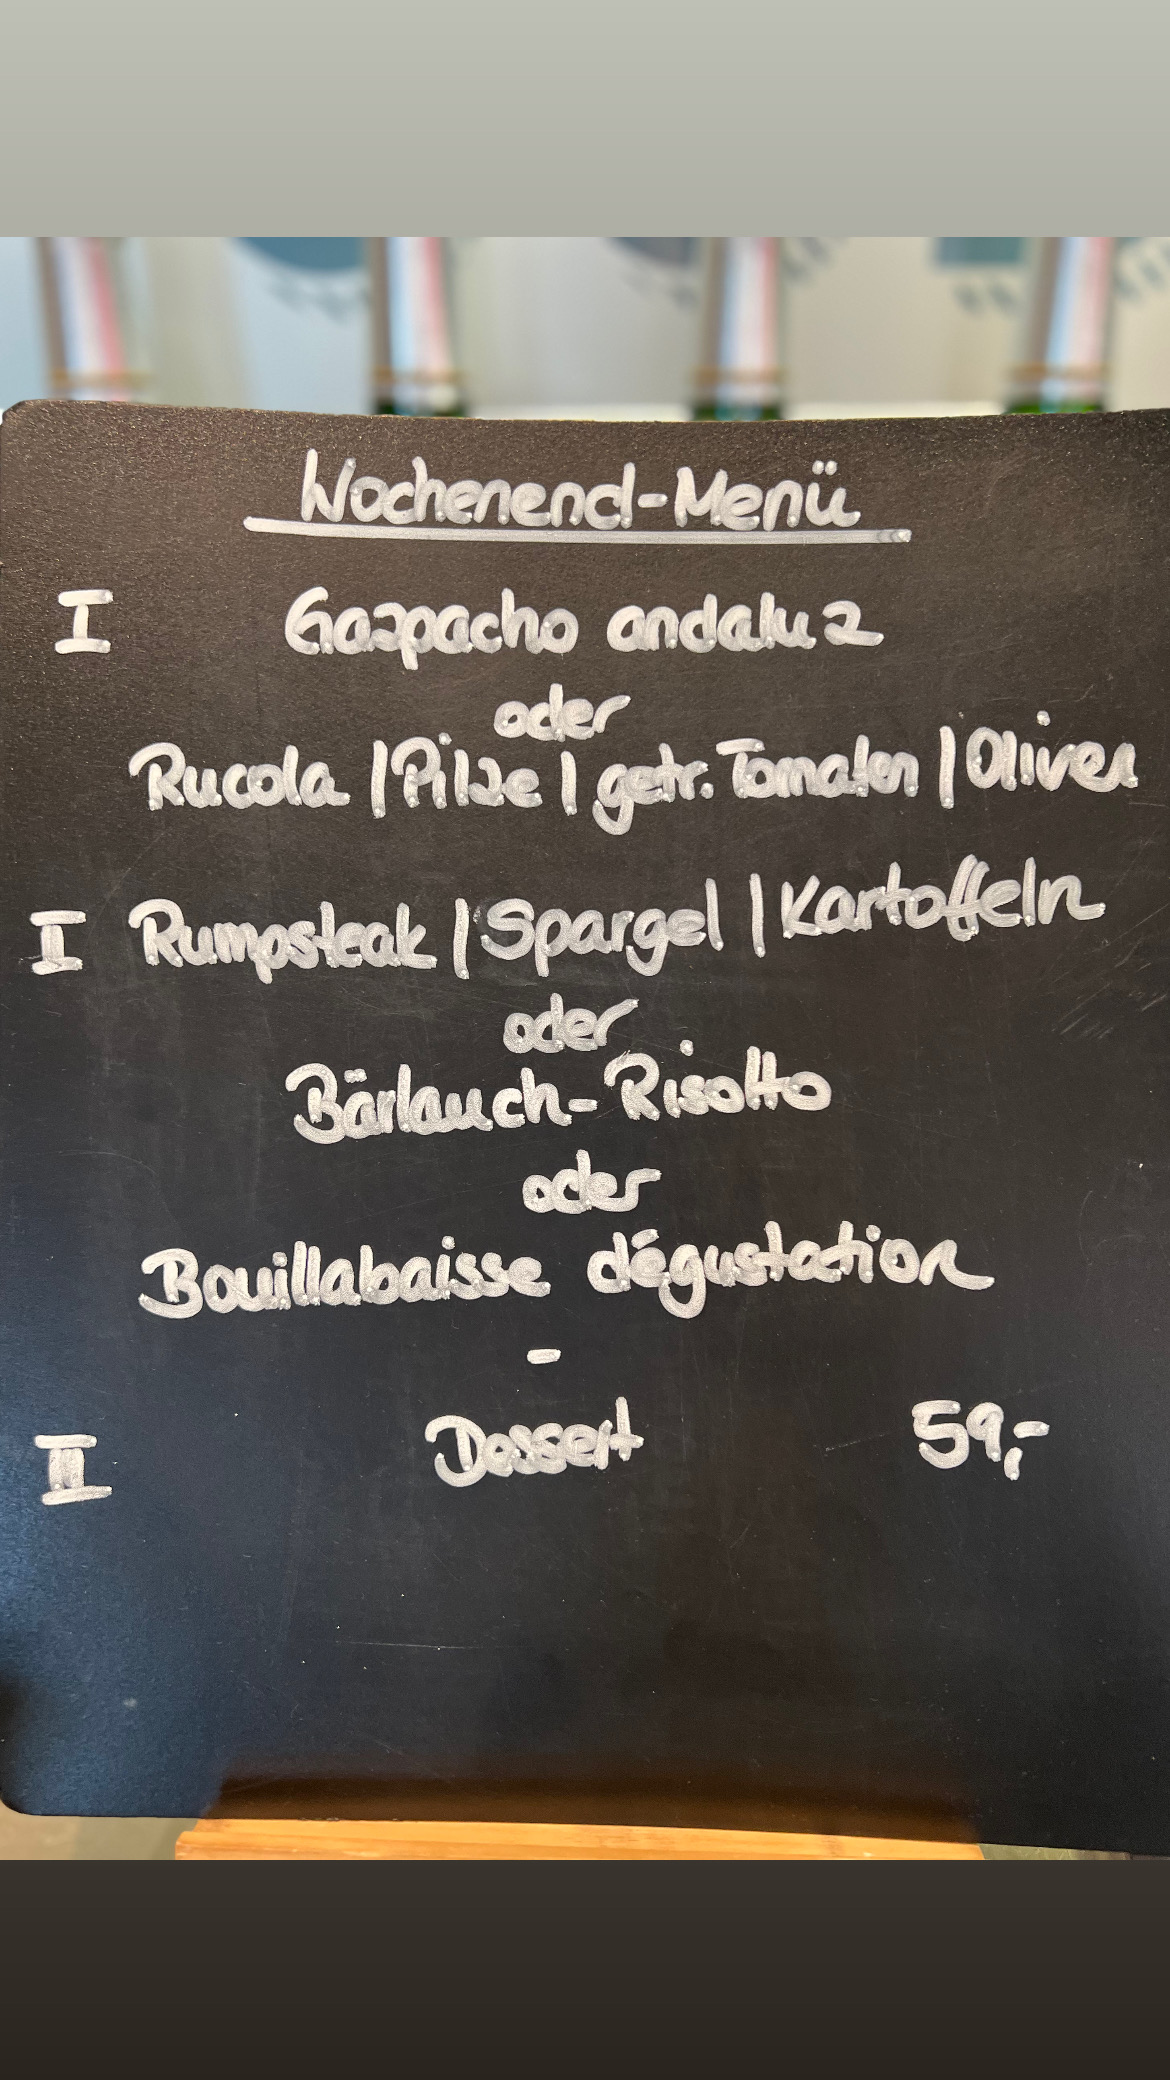 Wochenend-Menü
I Gazpacho andaluz
oder
Rucola | Pilze | getr. Tomaten | Oliven
II Rumpsteak | Spargel | Kartoffeln
oder
Bärlauch-Risotto
oder
Bouillabaisse dégustation
-
III Dessert 59,-